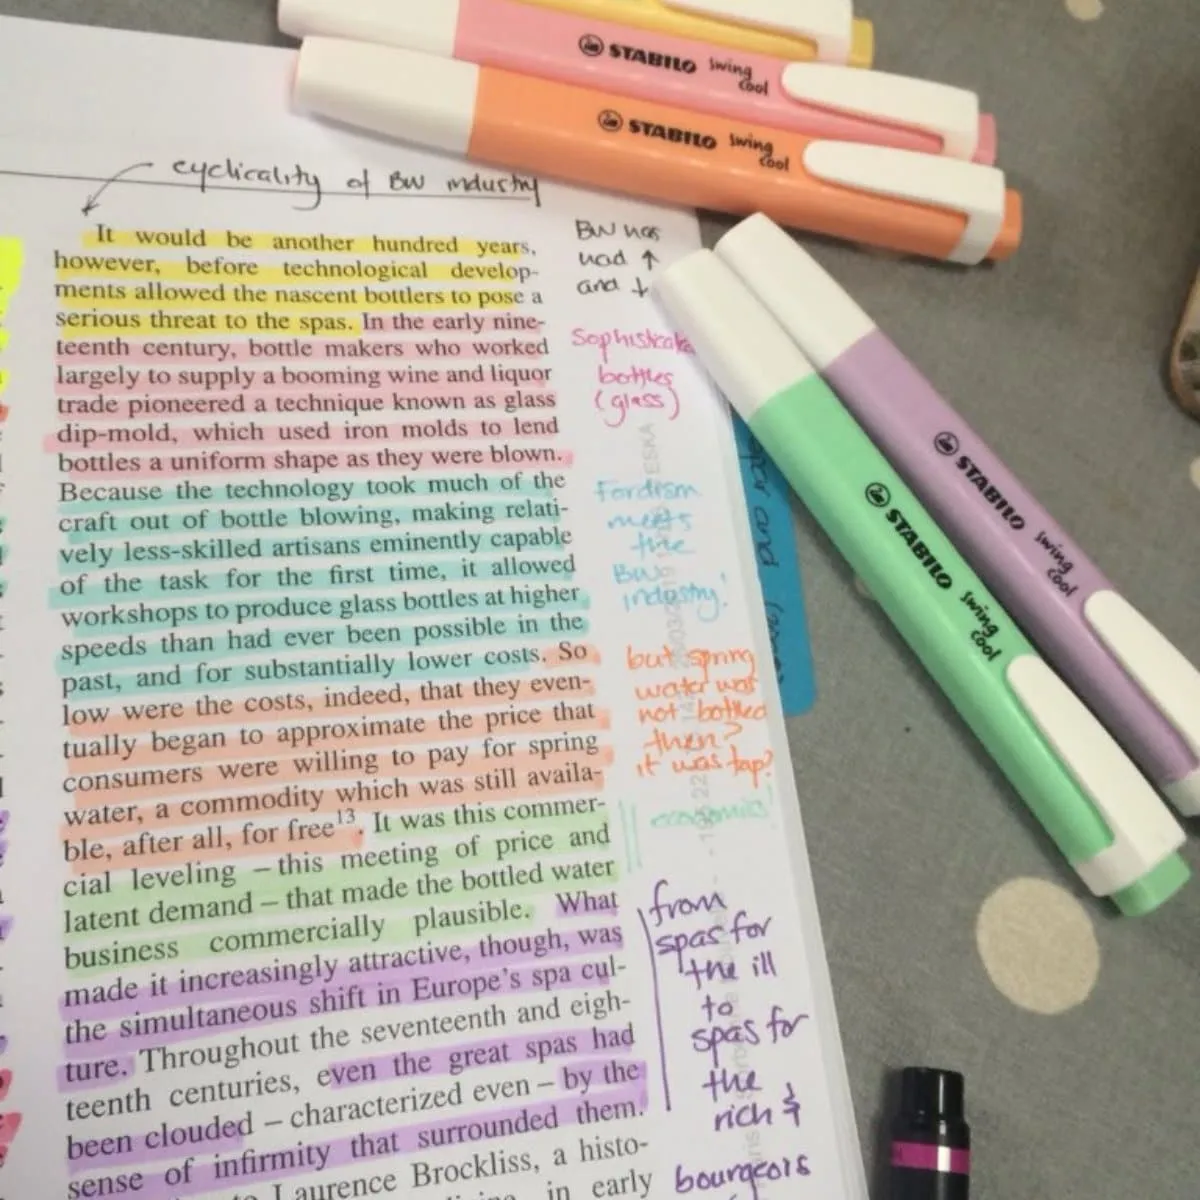 STABILO swing cool
STABILO swing cool
STABILO swing cool
STABILO swing cool
cyclicality of BW industry
It would be another hundred years,
however, before technological develop-
ments allowed the nascent bottlers to pose a
serious threat to the spas. In the early nine-
teenth century, bottle makers who worked
largely to supply a booming wine and liquor
trade pioneered a technique known as glass
dip-mold, which used iron molds to lend
bottles a uniform shape as they were blown.
Because the technology took much of the
craft out of bottle blowing, making relati-
vely less-skilled artisans eminently capable
of the task for the first time, it allowed
workshops to produce glass bottles at higher
speeds than had ever been possible in the
past, and for substantially lower costs. So
low were the costs, indeed, that they even-
tually began to approximate the price that
consumers were willing to pay for spring
water, a commodity which was still availa-
ble, after all, for free13. It was this commer-
cial leveling – this meeting of price and
latent demand – that made the bottled water
business commercially plausible. What
made it increasingly attractive, though, was
the simultaneous shift in Europe's spa cul-
ture. Throughout the seventeenth and eigh-
teenth centuries, even the great spas had
been clouded – characterized even – by the
sense of infirmity that surrounded them.
Laurence Brockliss, a histo-
in early
BW has
had ↑
and ↓
bottles
(glass)
Fordism
meets
the
BW
industry!
but spring
water was
not bottled
then?
it was tap?
economics!
from
spas for
the ill
to
spas for
the
rich &
bourgeois
ESKA